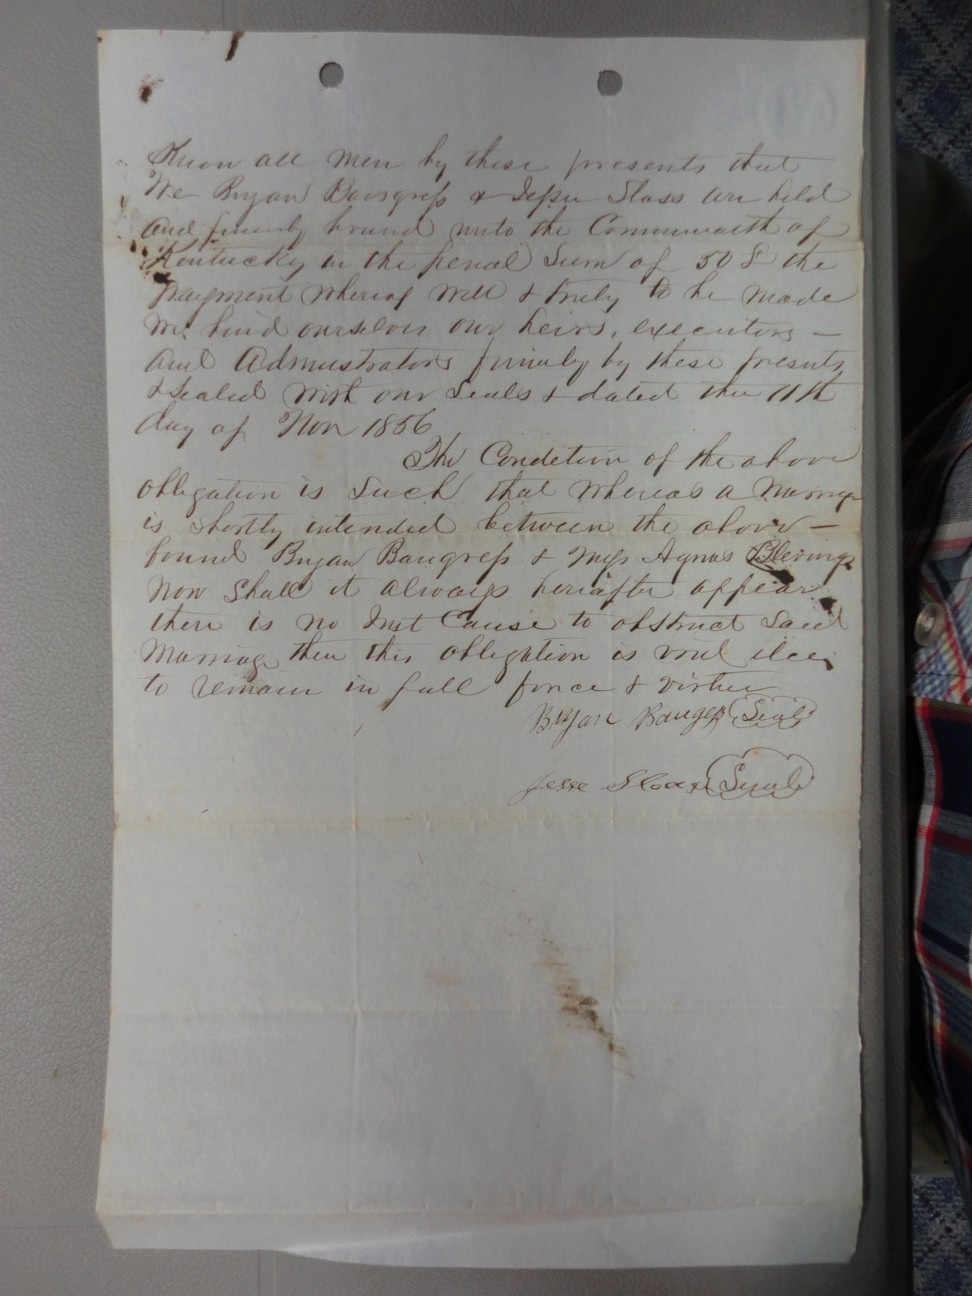 Know all Men by these presents that
We Bryan Baugress & Jesse Sloss are held
and firmly bound unto the Commonwealth of
Kentucky in the penal Sum of 50 $ the
payment whereof well & truly to be Made
We bind ourselves our heirs, executors —
and Admnistrators firmly by these presents,
& Sealed With our Seals & dated this 11th
day of Nov 1856
The Condetion of the above
obligation is Such that whereas a Marriage
is shortly intended between the above —
bound Bryan Baugress & Miss Agnas Blevins
Now Shall it always hereafter appear
there is no Just Cause to obstruct Said
Marriage then this obligation is void else
to remain in full force & Virtue
Bryan Seal
Jesse Seal